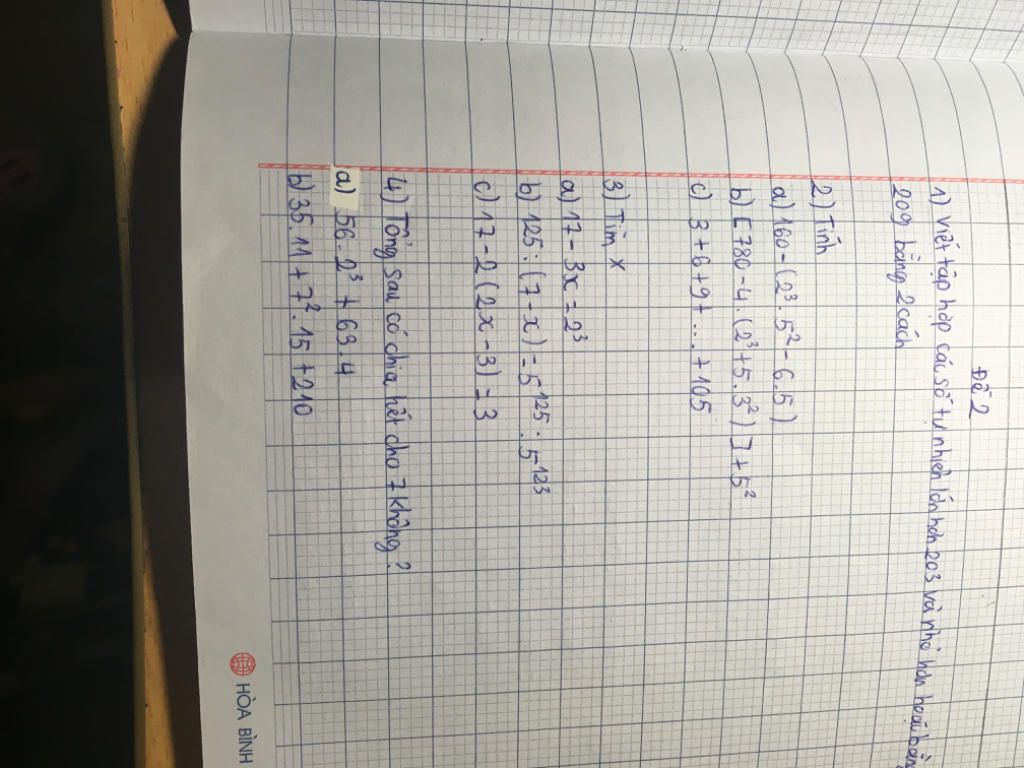 Đề 2
1) Viết tập hợp các số tự nhiên lớn hơn 203 và nhỏ hơn hoặc bằng
209 bằng 2 cách
2) Tính
a) 160 - (2³ . 5² - 6 . 5)
b) [780 - 4 . (2³ + 5 . 3²)] + 5²
c) 3 + 6 + 9 + ... + 105
3) Tìm x
a) 17 - 3x = 2³
b) 125 : (7 - x) = 5¹²⁵ : 5¹²³
c) 17 - 2 (2x - 3) = 3
4) Tổng sau có chia hết cho 7 không?
a) 56 . 2³ + 63 . 4
b) 35 . 11 + 7² . 15 + 210
HÒA BÌNH